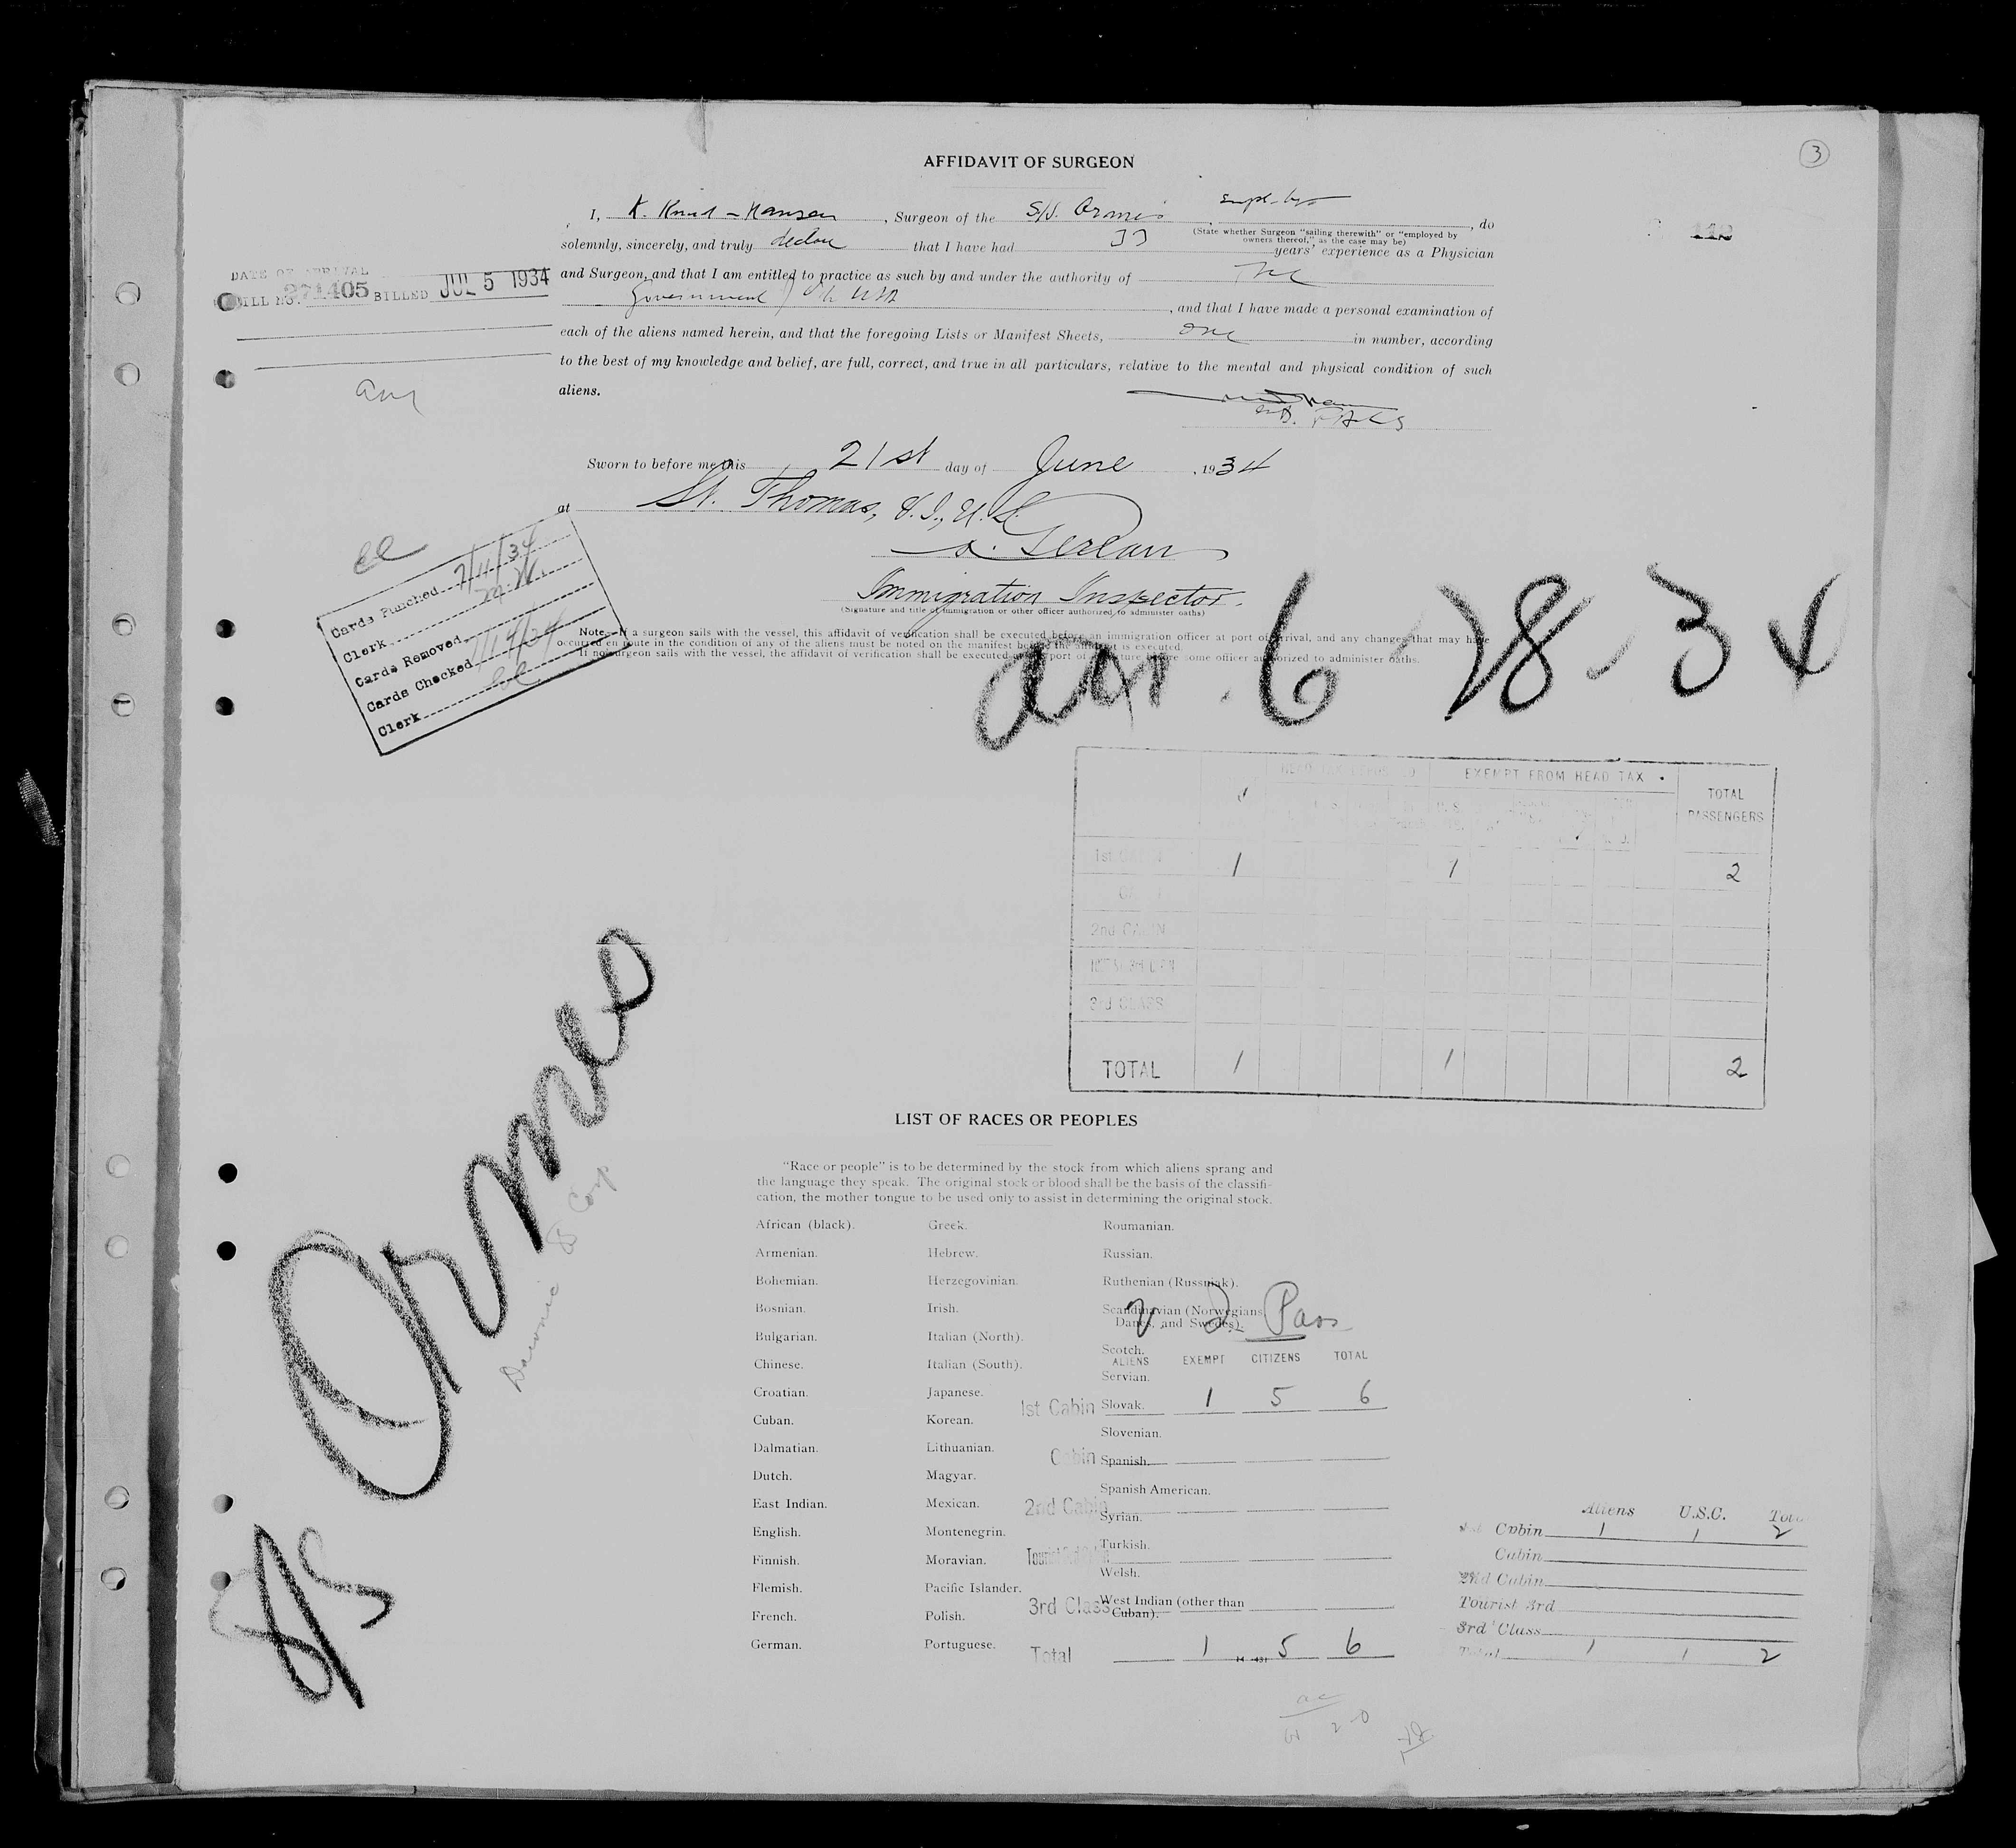 3
AFFIDAVIT OF SURGEON
I, K. Knud-Hansen, Surgeon of the S/S. Ormes Empl. by, do
(State whether Surgeon "sailing therewith" or "employed by
owners thereof," as the case may be)
112
solemnly, sincerely, and truly declare that I have had 33 years' experience as a Physician
DATE OF ARRIVAL
BILL NO. 271405 BILLED JUL 5 1934
and Surgeon, and that I am entitled to practice as such by and under the authority of The
Government of the USA, and that I have made a personal examination of
each of the aliens named herein, and that the foregoing Lists or Manifest Sheets, one in number, according
to the best of my knowledge and belief, are full, correct, and true in all particulars, relative to the mental and physical condition of such
aliens.
Sworn to before me this 21st day of June, 1934
at St. Thomas, V.I., U.S.
Immigration Inspector.
(Signature and title of immigration or other officer authorized to administer oaths)
Note.—If a surgeon sails with the vessel, this affidavit of verification shall be executed before an immigration officer at port of arrival, and any changes that may have
occurred en route in the condition of any of the aliens must be noted on the manifest before the affidavit is executed.
If no surgeon sails with the vessel, the affidavit of verification shall be executed at the port of departure before some officer authorized to administer oaths.
Cards Punched 7/11/34
Clerk
Cards Removed
Cards Checked 7/14/34
Clerk
arr. 6-28-34
HEAD TAX EXEMPT FROM HEAD TAX
TOTAL
PASSENGERS
1st CABIN 1 1 2
2nd CABIN
3rd CLASS
TOTAL 1 1 2
S/S Ormes
LIST OF RACES OR PEOPLES
"Race or people" is to be determined by the stock from which aliens sprang and
the language they speak. The original stock or blood shall be the basis of the classifi-
cation, the mother tongue to be used only to assist in determining the original stock.
African (black).
Armenian.
Bohemian.
Bosnian.
Bulgarian.
Chinese.
Croatian.
Cuban.
Dalmatian.
Dutch.
East Indian.
English.
Finnish.
Flemish.
French.
German.
Greek.
Hebrew.
Herzegovinian.
Irish.
Italian (North).
Italian (South).
Japanese.
Korean.
Lithuanian.
Magyar.
Mexican.
Montenegrin.
Moravian.
Pacific Islander.
Polish.
Portuguese.
Roumanian.
Russian.
Ruthenian (Russniak).
Scandinavian (Norwegians,
Danes, and Swedes).
Scotch.
Servian.
Slovak.
Slovenian.
Spanish.
Spanish American.
Syrian.
Turkish.
Welsh.
West Indian (other than
Cuban).
V. I. Pass
ALIENS EXEMPT CITIZENS TOTAL
1st Cabin 1 5 6
Cabin
2nd Cabin
Tourist 3rd Cabin
3rd Class
Total 1 5 6
Aliens U.S.C. Total
1st Cabin 1 1 2
Cabin
2nd Cabin
Tourist 3rd
3rd Class
Total 1 1 2